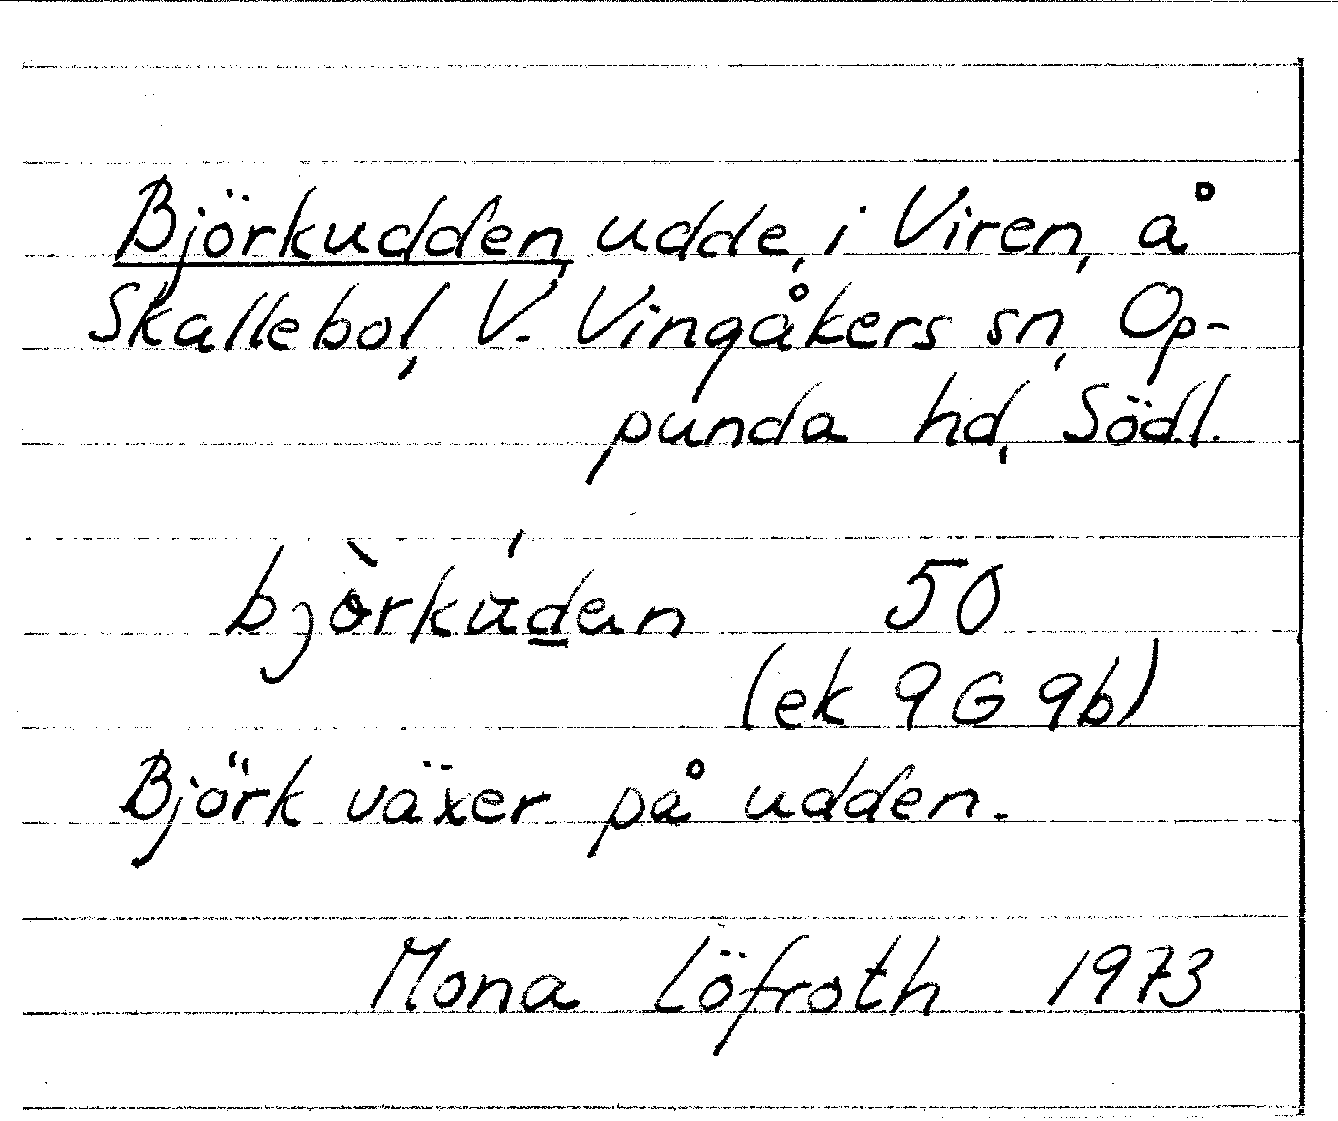 Björkudden, udde, i Viren, å
Skallebol, V. Vingåkers sn, Op-
punda hd, Södl.
bjòrkúdan 50
(ek 9G 9b)
Björk växer på udden.
Mona Löfroth 1973